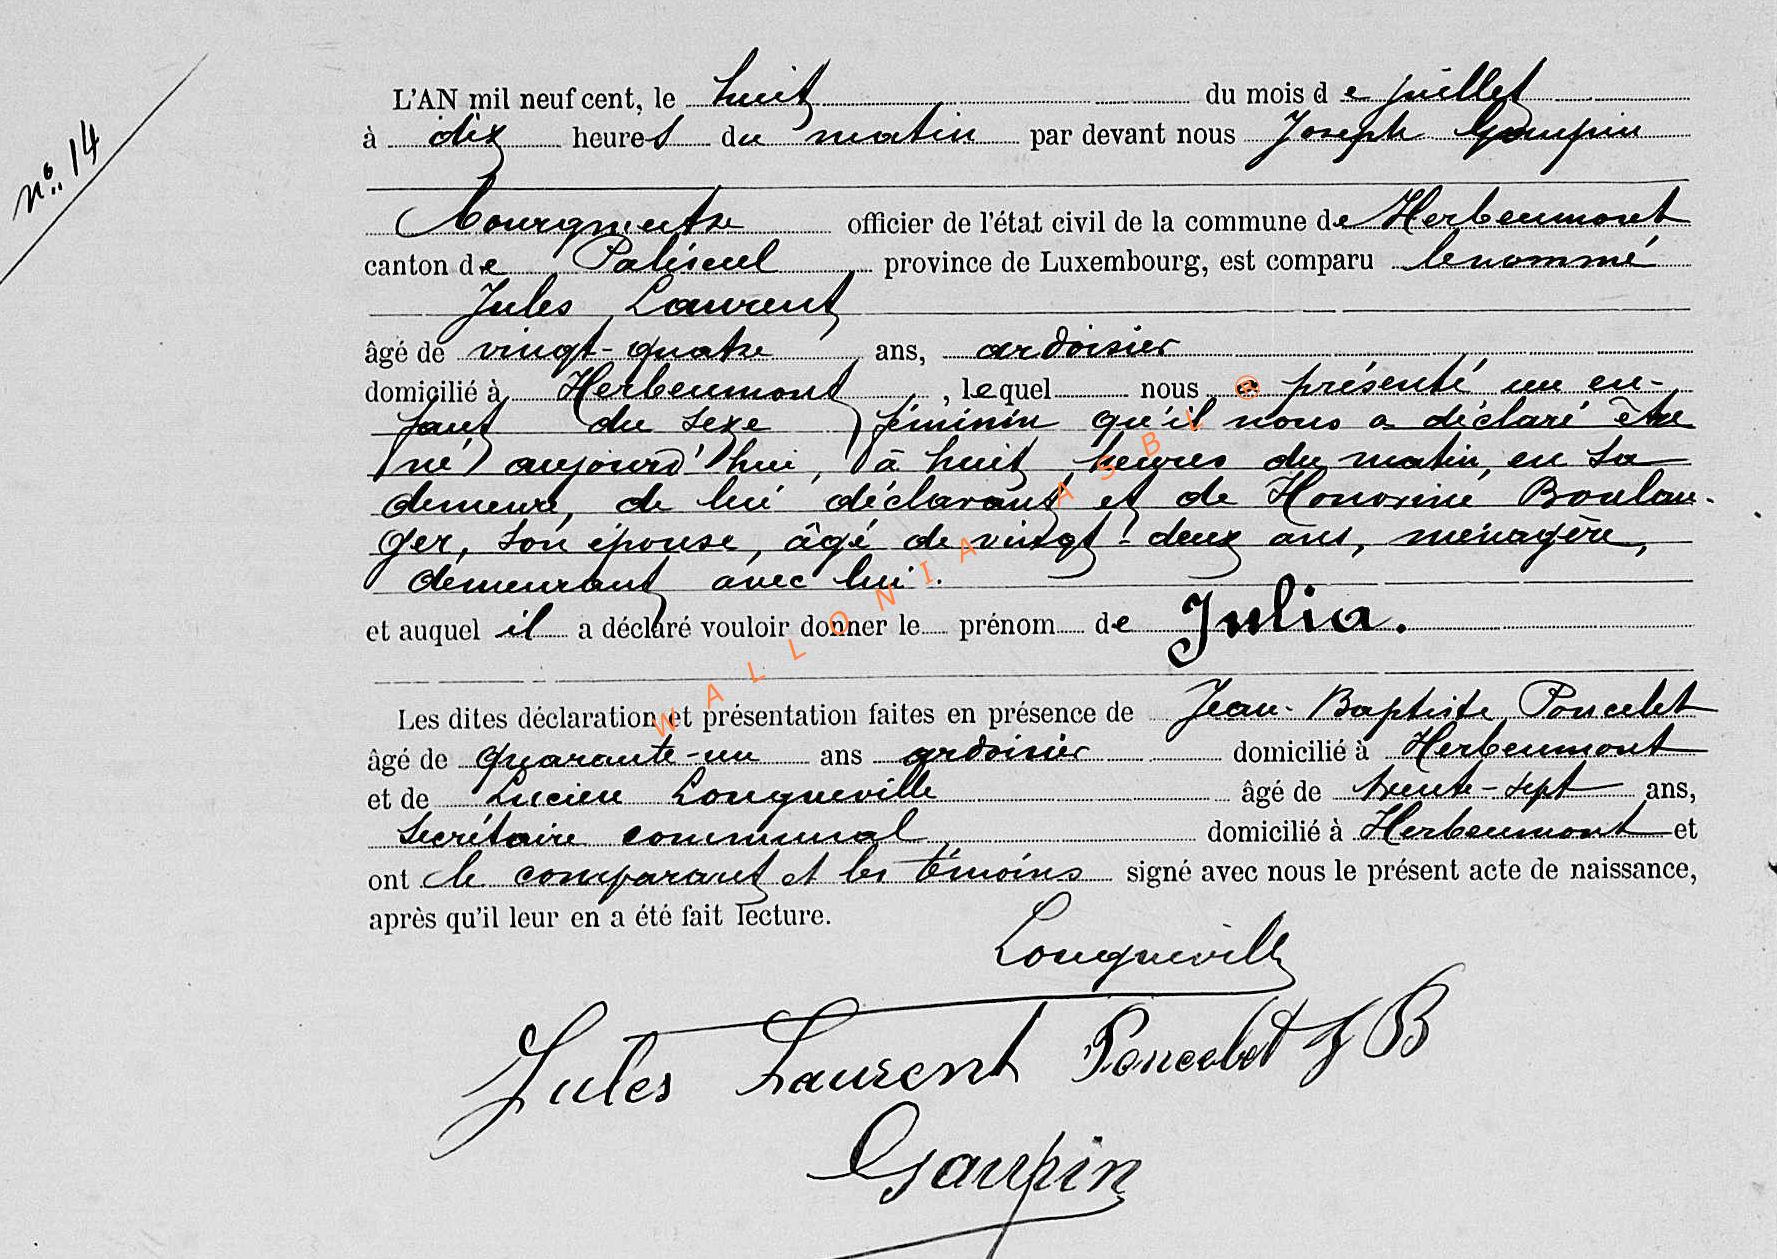 n°. 14
L'AN mil neuf cent, le huit du mois de juillet
à dix heures du matin par devant nous Joseph Gaupin
bourgmestre officier de l'état civil de la commune de Herbeumont
canton de Paliseul province de Luxembourg, est comparu le nommé
Jules Laurent
âgé de vingt-quatre ans, ardoisier
domicilié à Herbeumont, lequel nous a présenté un en-
fant du sexe féminin qu'il nous a déclaré être
né aujourd'hui, à huit heures du matin, en sa
demeure, de lui déclarant et de Honorine Boulan-
ger, son épouse, âgé de vingt-deux ans, ménagère,
demeurant avec lui.
et auquel il a déclaré vouloir donner le prénom de Julia.
Les dites déclaration et présentation faites en présence de Jean-Baptiste Poncelet
âgé de quarante-un ans ardoisier domicilié à Herbeumont
et de Lucien Longueville âgé de trente-sept ans,
secrétaire communal domicilié à Herbeumont et
ont le comparant et les témoins signé avec nous le présent acte de naissance,
après qu'il leur en a été fait lecture.
Longueville
Jules Laurent Poncelet J B
Gaupin
WALLONIA ASBL ®